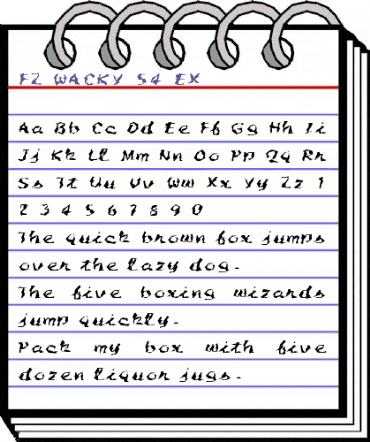 FZ WACKY 54 EX
Aa Bb Cc Dd Ee Ff Gg Hh Ii
Jj Kk Ll Mm Nn Oo Pp Qq Rr
Ss Tt Uu Vv Ww Xx Yy Zz 1
2 3 4 5 6 7 8 9 0
The quick brown fox jumps
over the lazy dog.
The five boxing wizards
jump quickly.
Pack my box with five
dozen liquor jugs.